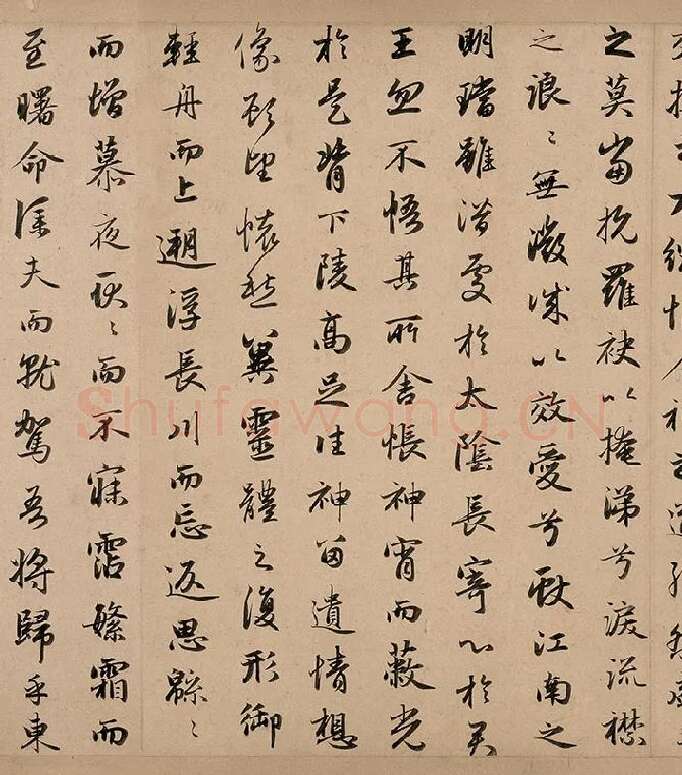 之莫當抗羅袂以掩涕兮淚流襟
之浪〻無微誠以效愛兮獻江南之
明璫雖潛處於太陰長寄心於君
王忽不悟其所舍悵神宵而蔽光
於是背下陵高足往神留遺情想
像顧望懷愁冀靈體之復形御
輕舟而上遡浮長川而忘返思緜〻
而增慕夜耿〻而不寐霑繁霜而
至曙命僕夫而就駕吾將歸乎東
Shufawang.CN